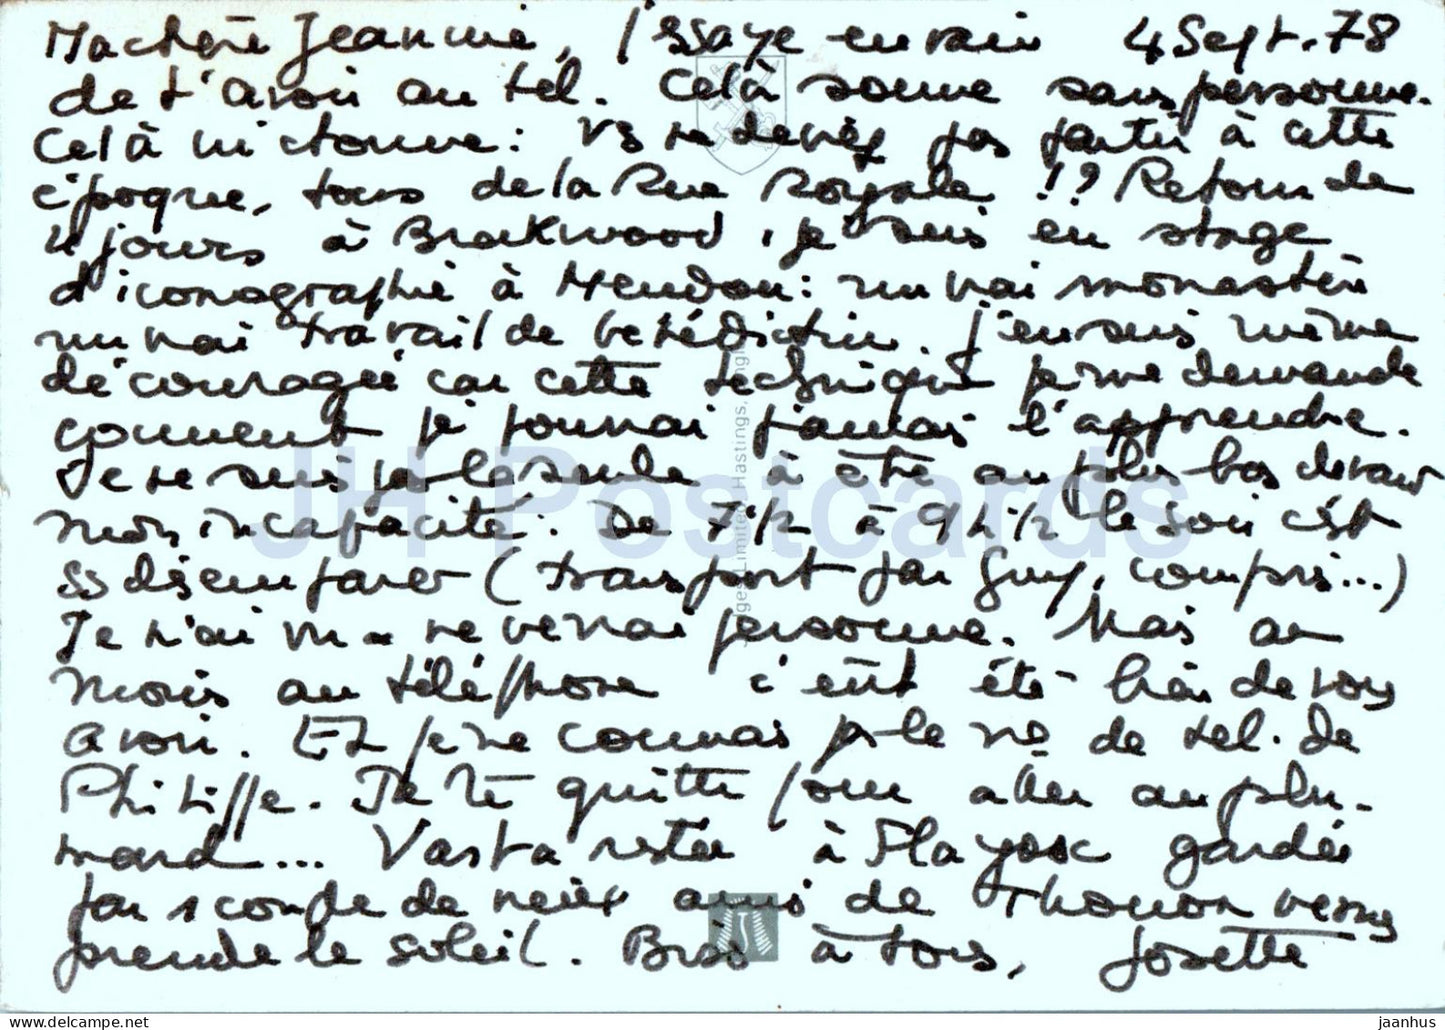 Ma chère Jeannine, J'essaye en vain 4 Sept. 78
de t'avoir au tél. Celà sonne sans personne.
Celà m'étonne : vs ne deviez pas partir à cette
époque, tous de la Rue Royale !? Retour de
4 jours à Brockwood, je suis en stage
d'iconographie à Meudon : un vrai monastère
un vrai travail de bénédictin. J'en suis même
découragée car cette technique je me demande
comment je pourrai jamais l'apprendre.
Je ne suis pas la seule à être au plus bas devant
mon incapacité. De 7 1/2 à 9 h 1/2 le soir c'est
ss désemparer (transport par Guy, compris...)
Je n'ai vu - ne verrai personne. Mais au
moins au téléphone c'eût été bien de vous
avoir. Et je ne connais ps le n° de tél. de
Philippe. Je te quitte pour aller au plu-
mard... Vasta restée à Flayosc gardée
par 1 couple de vieux amis de Thonon venus
prendre le soleil. Bises à tous, Josette
JH Postcards
Judges Limited, Hastings, England
jaanhus www.hippostcard.com